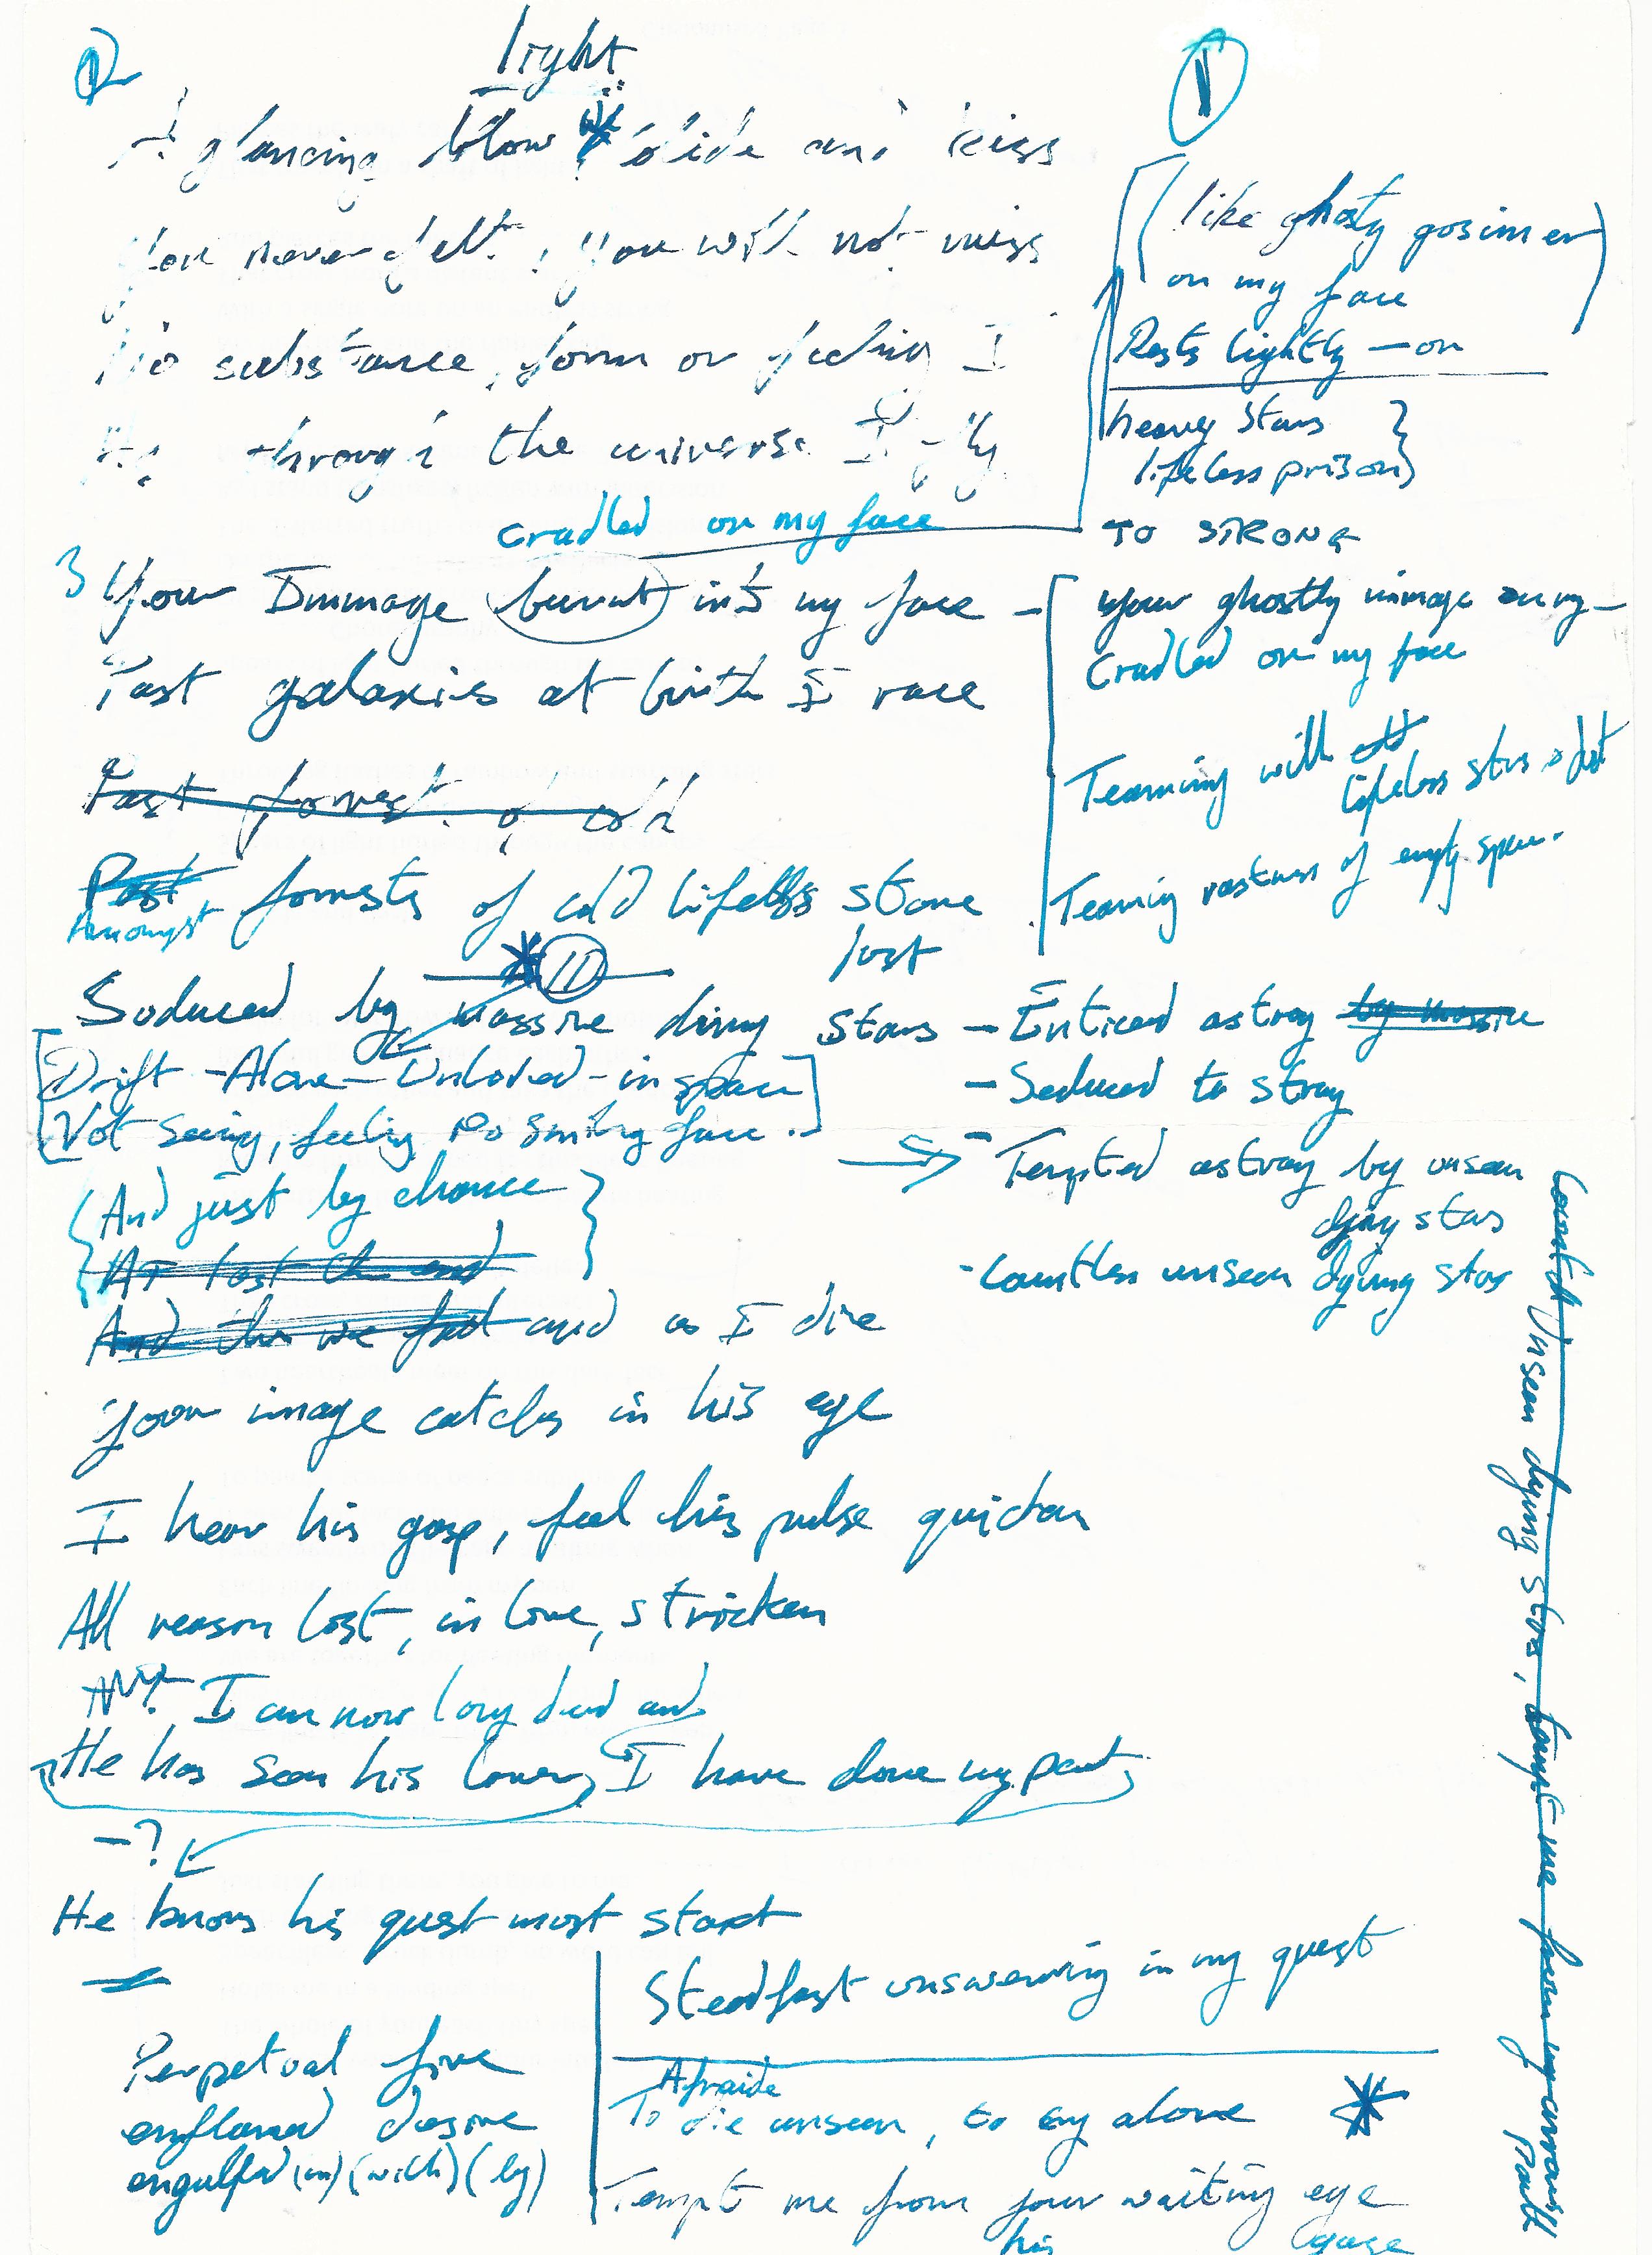 light
A glancing blow we slide and kiss
You never felt, you will not miss
No substance, form or feeling I
through the universe I fly
cradled on my face
3 Your Immage burnt into my face –
Past galaxies at birth I race
Past forrest of cold
Past forrests of cold lifeless stone
Amongst
lost
* 11
Seduced by massive dying stars
[Drift – Alone – Unloved – in space
Not seeing, feeling no smiling face.]
{And just by chance
At last the end}
And then we fall and as I die
your image catches in his eye
I hear his gasp, feel his pulse quicken
All reason lost, in love, stricken
I can now long dead and
He has seen his lover, I have done my part,
– ?
He knows his quest must start
Perpetual fire
enflamed desire
engulfed (in) (with) (by)
1
(like ghosty gosimer
on my face)
Rests lightly – on
heavy stars }
lifeless prison }
TO STRONG
your ghostly immage on my –
Cradled on my face
Teaming with
lifeless stars &
Teaming vastness of empty space.
– Enticed astray by massive
– Seduced to stray
– Tempted astray by unseen
dying stars
- Countless unseen dying stars
Steadfast unswerving in my quest
Afraide
To die unseen, to cry alone *
Tempt me from your waiting eye
his gaze
Countless Unseen dying stars, tempt me from my
path